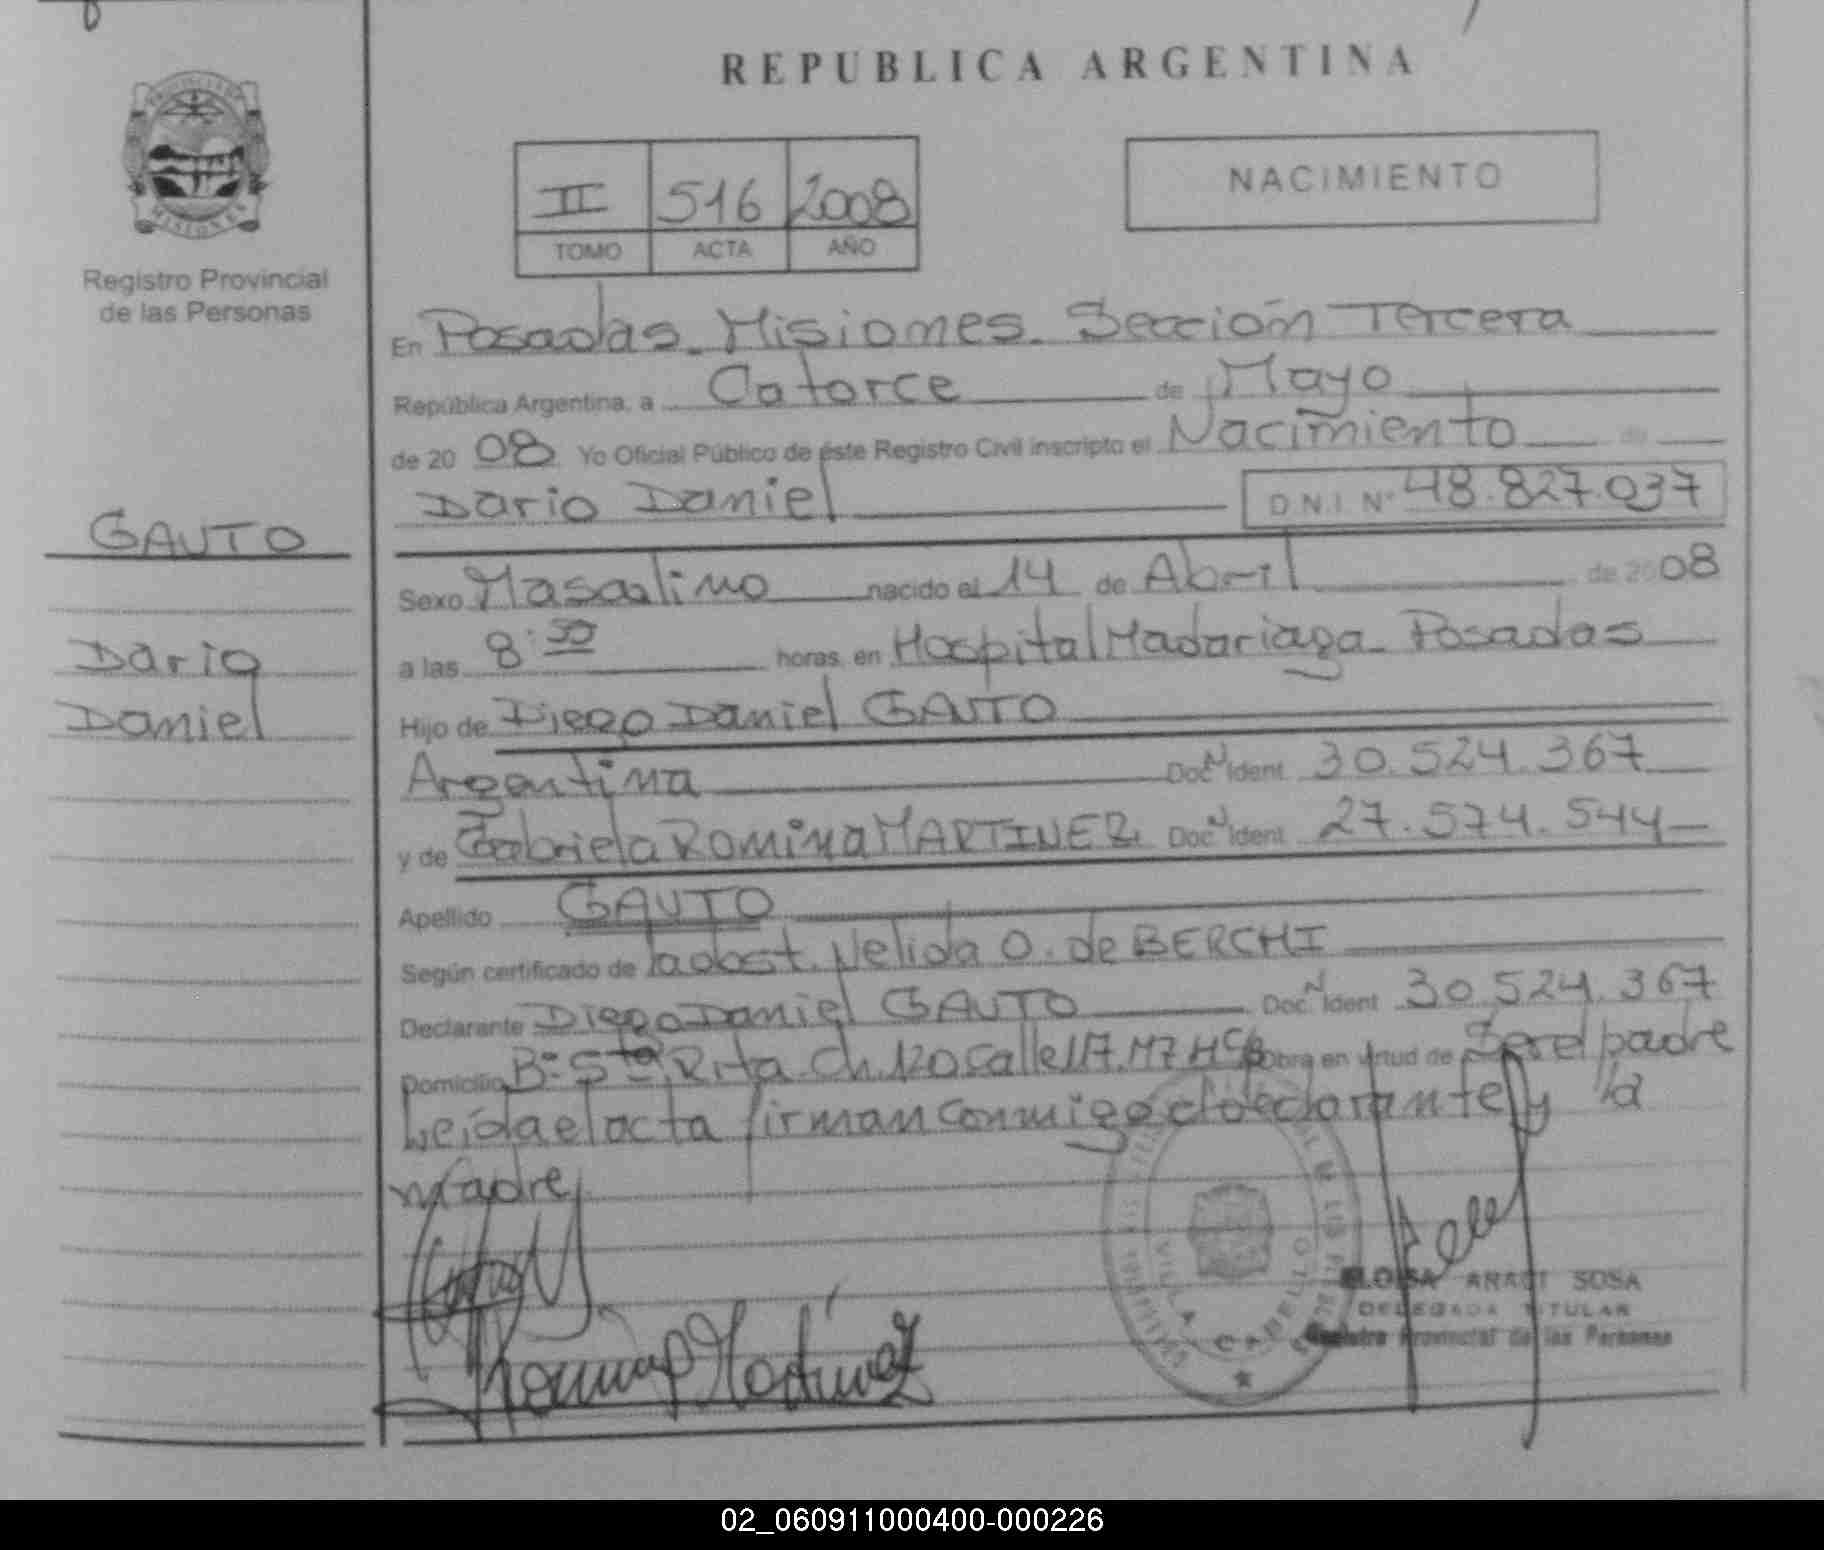 REPUBLICA ARGENTINA
PROVINCIA DE
MISIONES
Registro Provincial
de las Personas
II 516 2008
TOMO ACTA AÑO
NACIMIENTO
En Posadas. Misiones. Sección Tercera
República Argentina, a Catorce de Mayo
de 2008 Yo Oficial Público de éste Registro Civil inscripto el Nacimiento de
Dario Daniel D.N.I. Nº 48.827.037
GAUTO
Dario
Daniel
Sexo Masculino nacido el 14 de Abril de 2008
a las 8:50 horas, en Hospital Madariaga. Posadas
Hijo de Diego Daniel GAUTO
Argentina Doc N Ident 30.524.367
y de Gabriela Romina MARTINEZ Doc N Ident 27.574.544
Apellido GAUTO
Según certificado de la obst. Nelida O. de BERCHI
Declarante Diego Daniel GAUTO Doc N Ident 30.524.367
Domicilio Bº Sta Rita Ch. 120 Calle 117. M7 Obra en virtud de Ser el padre
Leída el acta firman conmigo el declarante y la
Madre
Romina Martinez
VILLA CABELLO
ELOISA ARACI SOSA
DELEGADA TITULAR
Registro Provincial de las Personas
02_060911000400-000226